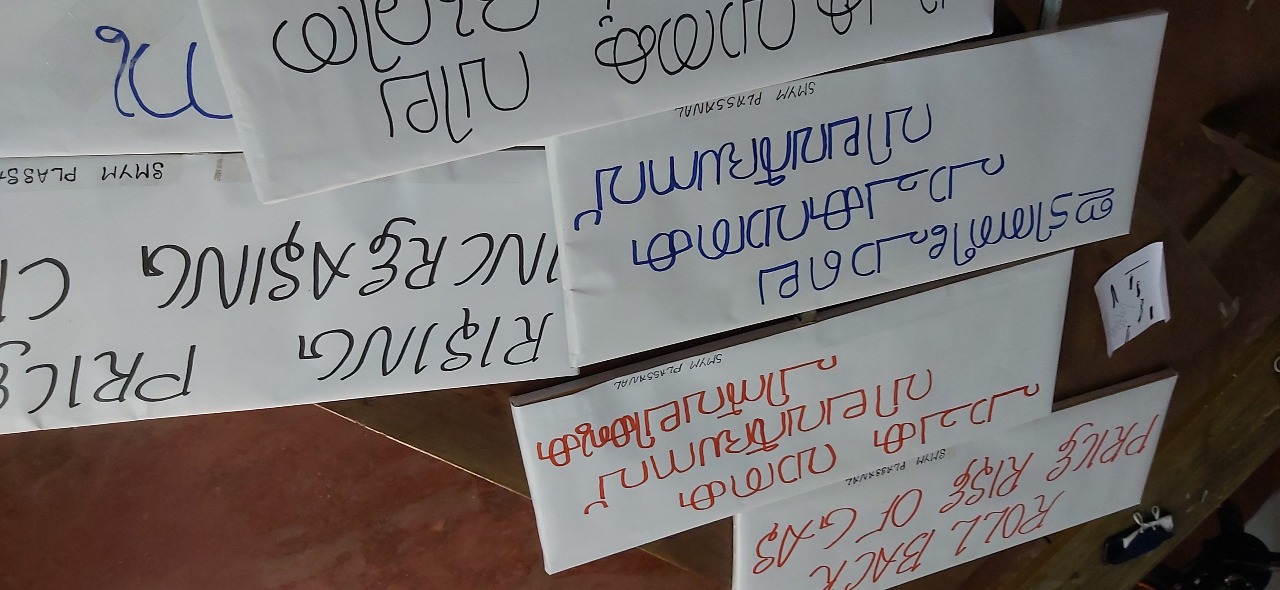 ROLL BACK
PRICE RISE OF GAS
SMYM PLASSANAL
പാചക വാതക
വിലവർദ്ധനവ്
പിൻവലിക്കുക
SMYM PLASSANAL
RISING PRICE
INCREASING
SMYM
ഇടിത്തീപോലെ
പാചകവാതക
വിലവർദ്ധനവ്
SMYM PLASSANAL
വാതക വില
ദുരിത
ന്നു